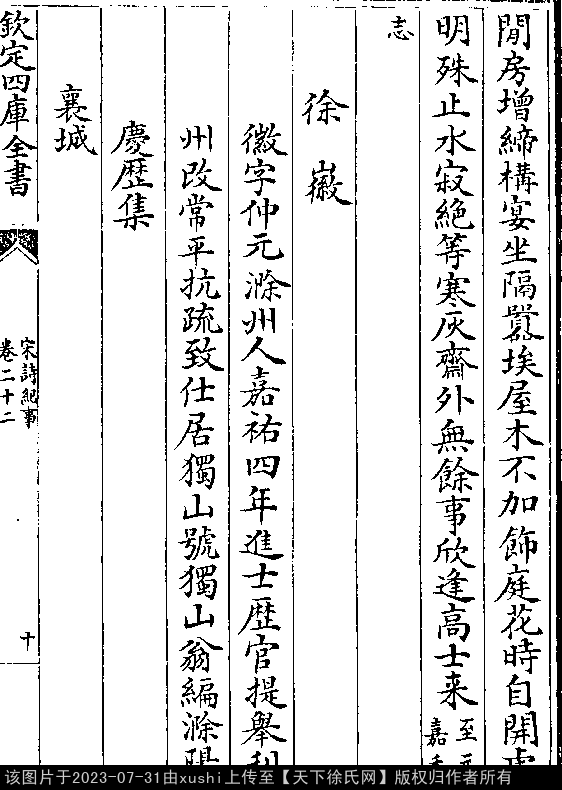 閒房增締構宴坐隔囂埃屋木不加飾庭花時自開
明殊止水寂絶等寒灰齋外無餘事欣逢高士来
至元
嘉禾
志
徐徽
徽字仲元滁州人嘉祐四年進士歴官提舉利
州改常平抗疏致仕居獨山號獨山翁編滁陽
慶歴集
襄城
欽定四庫全書
宋詩紀事
卷二十二
十
该图片于2023-07-31由xushi上传至【天下徐氏网】版权归作者所有